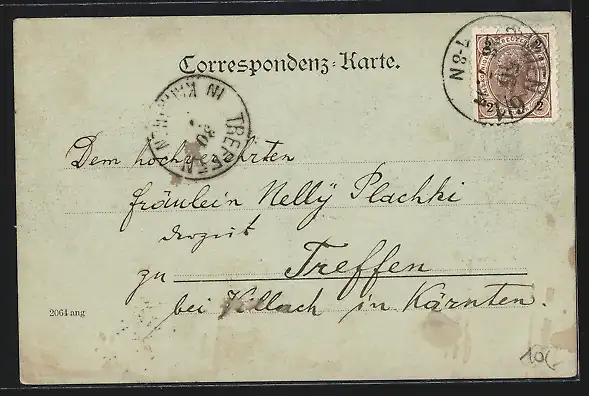 Correspondenz-Karte.
7-8N
WIEN
9/4
2 2
TREFFEN IN KÄRNTEN
30
Dem hochverehrten
Fräulein Nelly Plachki
derzeit
zu Treffen
bei Villach in Kärnten.
2064 ang
10.-